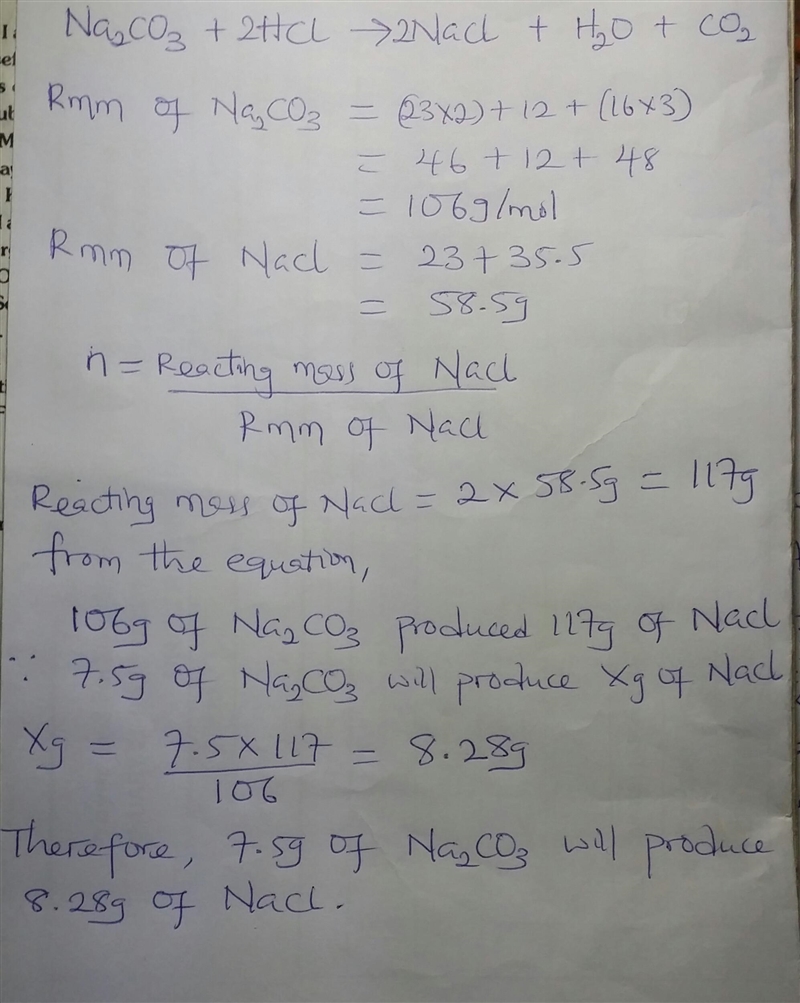 Na₂CO₃ + 2HCl → 2Nacl + H₂O + CO₂
Rmm of Na₂CO₃ = (23x2) + 12 + (16x3)
= 46 + 12 + 48
= 106g/mol
Rmm of Nacl = 23 + 35.5
= 58.5g
n = Reacting mass of Nacl
Rmm of Nacl
Reacting mass of Nacl = 2 x 58.5g = 117g
from the equation,
106g of Na₂CO₃ produced 117g of Nacl
∵ 7.5g of Na₂CO₃ will produce Xg of Nacl
Xg = 7.5 x 117 = 8.28g
106
Therefore, 7.5g of Na₂CO₃ will produce
8.28g of Nacl.